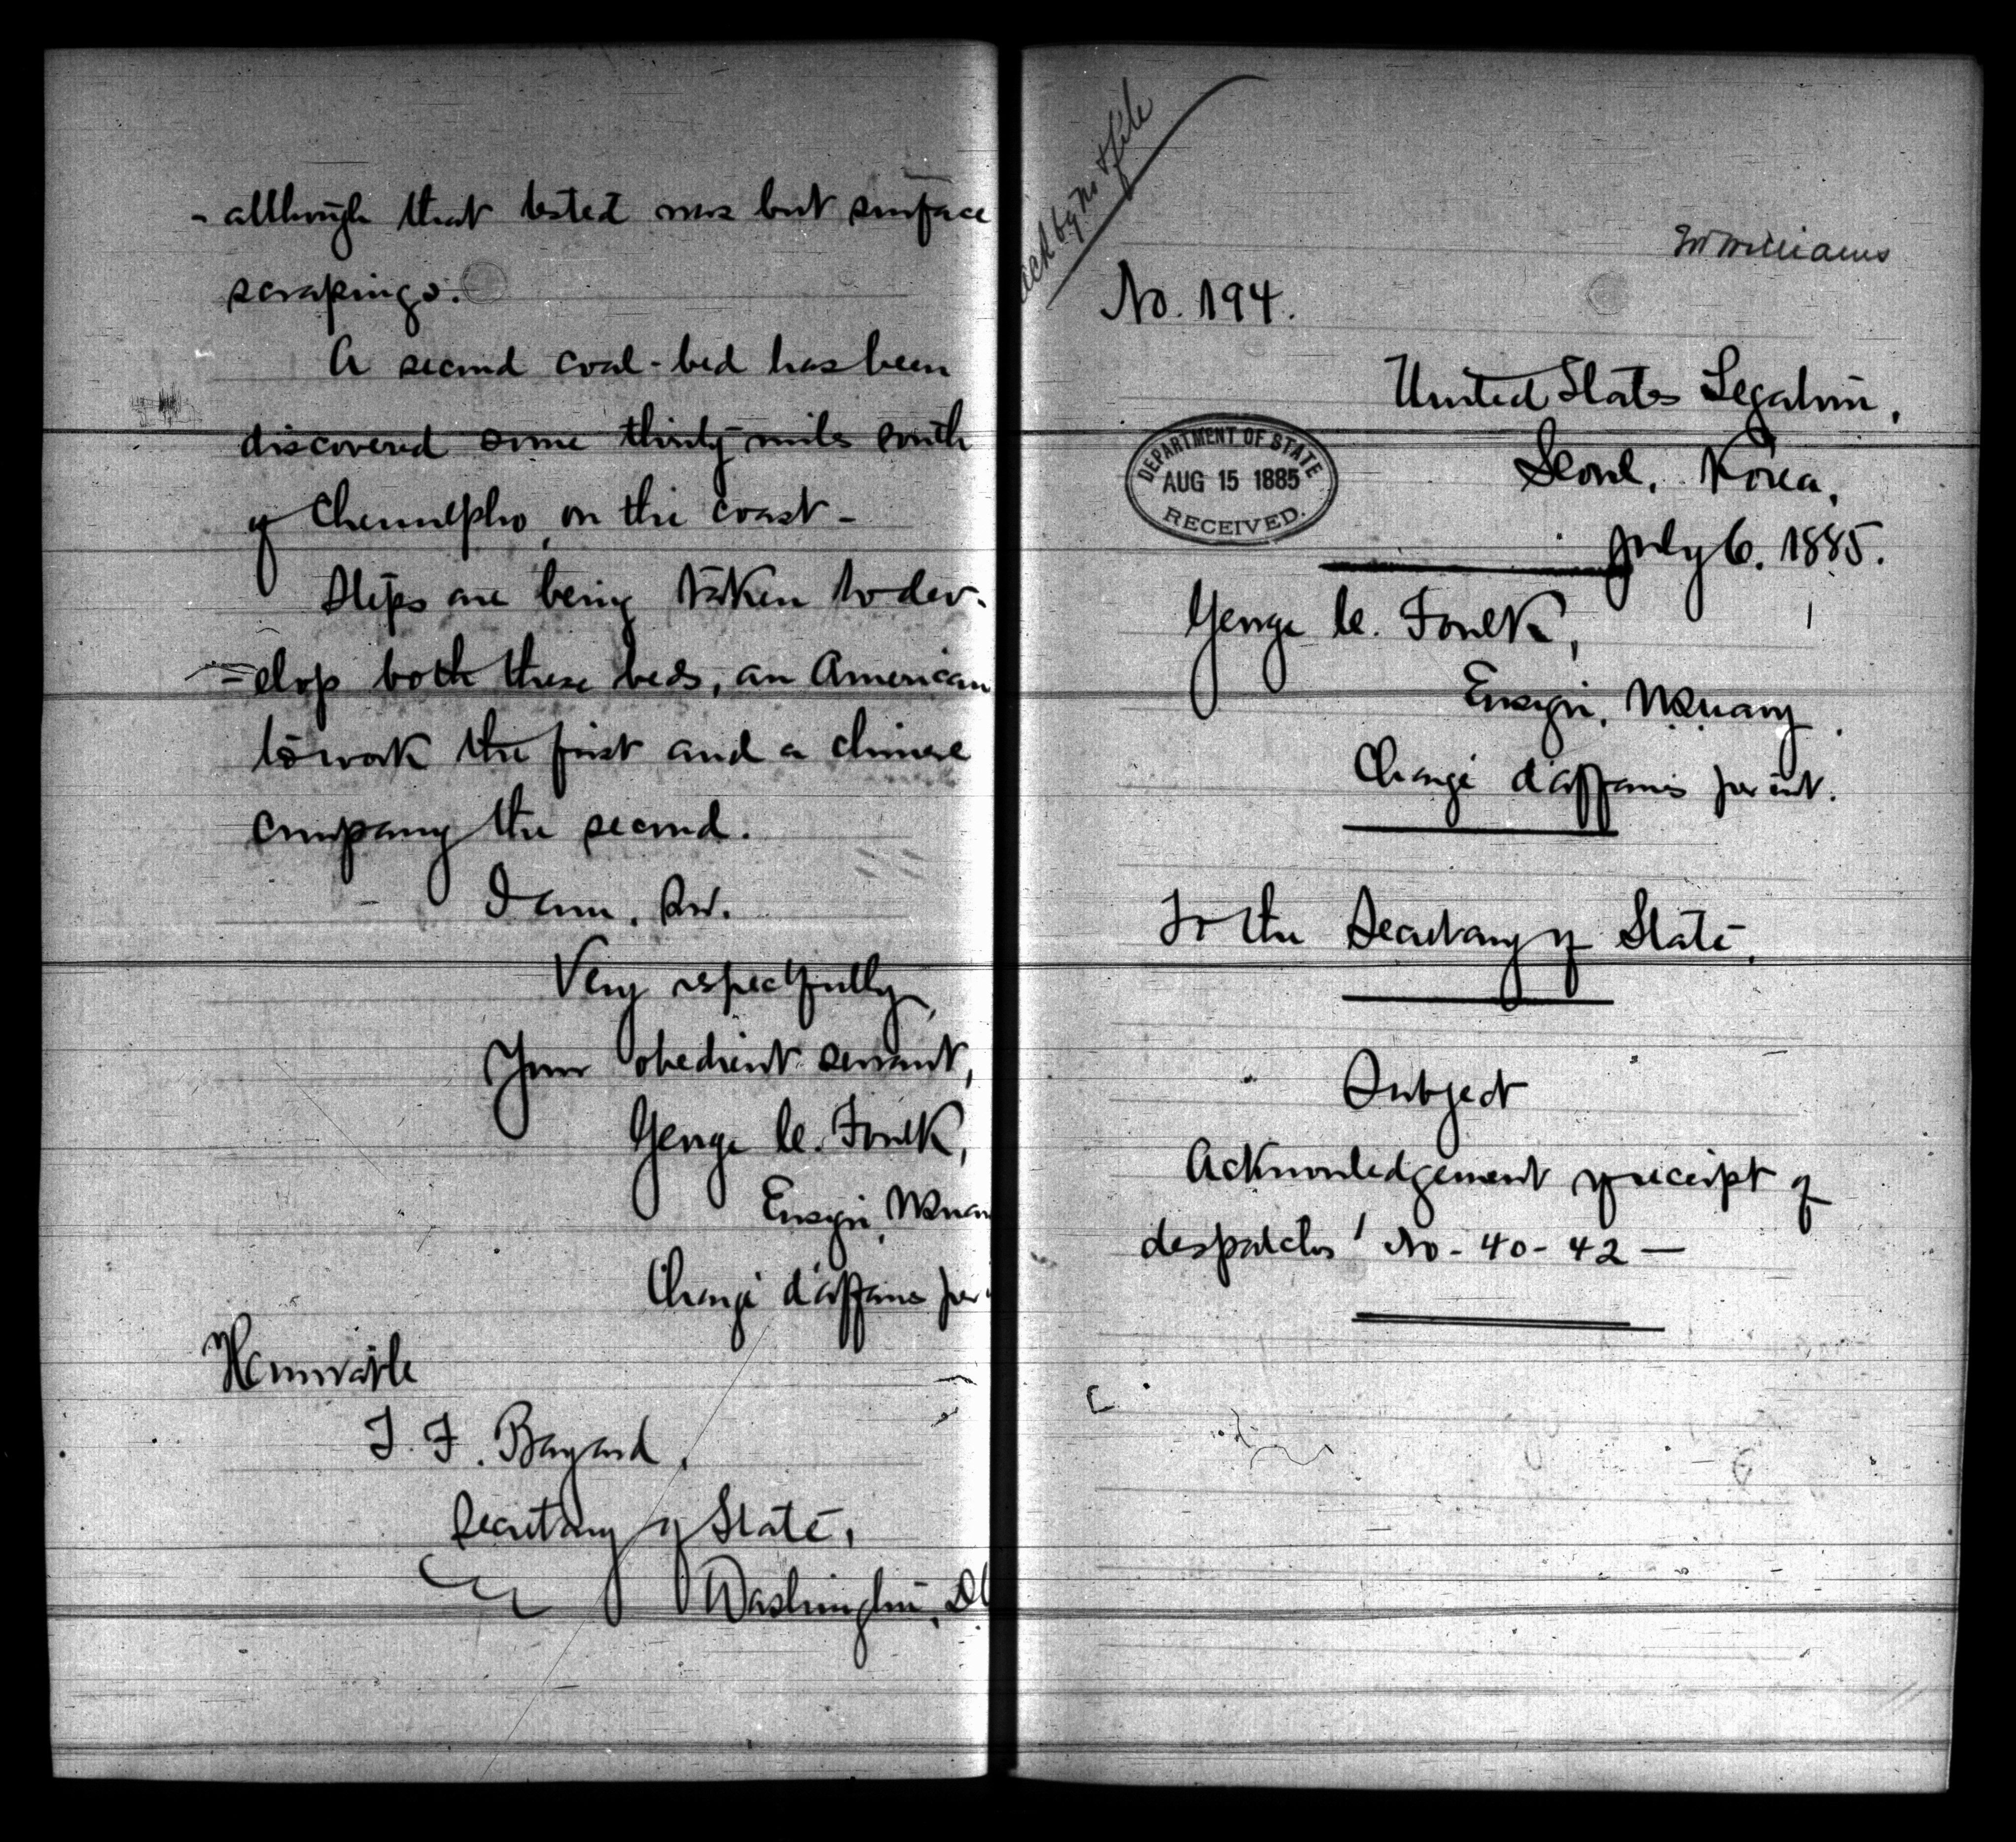 - although that tested was but surface
scrapings.
A second coal-bed has been
discovered some thirty miles south
of Chemulpho, on the coast -
Steps are being taken to dev-
=elop both these beds, an American
to work the first and a Chinese
company the second.
I am, Sir,
Very respectfully,
Your obedient servant,
George C. Foulk,
Ensign, U.S. Navy
Chargé d'affaires per
Honorable
T. F. Bayard,
Secretary of State,
Washington, D.C
ack by no & file
Mr Williams
No. 194.
United States Legation,
Seoul, Korea,
DEPARTMENT OF STATE
AUG 15 1885
RECEIVED.
July 6, 1885.
George C. Foulk,
Ensign, U.S. Navy.
Chargé d'affaires per int.
To the Secretary of State.
Subject
Acknowledgement of receipt of
despatches No - 40 - 42 —